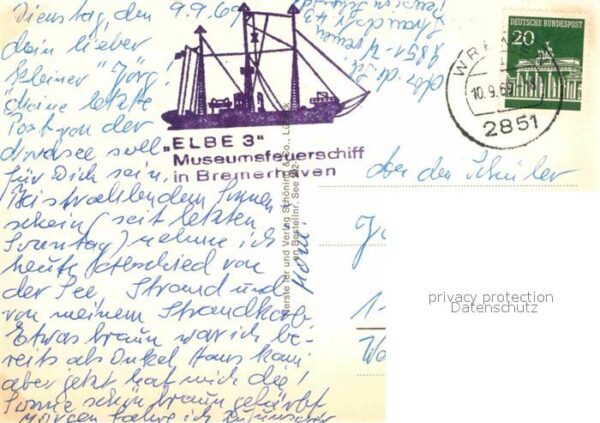 Dienstag, den 9.9.69
Mein lieber
kleiner "Jörg"
Meine letzte
Post von der
Nordsee soll
für Dich sein.
Bei strahlendem Sonnen
schein (seit letzten
Sonntag) nehme ich
heute Abschied von
der See, Strand und
von meinem Strandkorb.
Etwas braun war ich be-
reits als Onkel Hans kam
aber jetzt hat mich die
Sonne schön braun gefärbt
Morgen fahre ich
2851
"ELBE 3"
Museumsfeuerschiff
in Bremerhaven
Hersteller und Verlag Schöning & Co., Lübeck
Bestellnr. See
DEUTSCHE BUNDESPOST
20
WRE
10.9.69
2851
An den Schüler
1-
privacy protection
Datenschutz